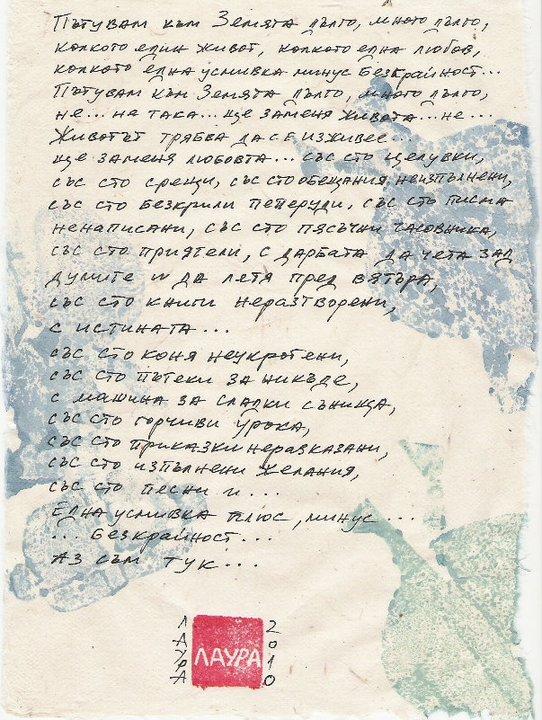 Пътувам към Земята дълго, много дълго,
колкото един живот, колкото една любов,
колкото една усмивка минус Безкрайност...
Пътувам към Земята дълго, много дълго,
не... не така... ще заменя живота... не...
Животът трябва да се изживее...
ще заменя любовта... със сто целувки,
със сто срещи, със сто обещания неизпълнени,
със сто безкрили пеперуди, със сто писма
ненаписани, със сто пясъчни часовника,
със сто приятели, с дарбата да чета зад
думите и да летя пред вятъра,
със сто книги неразтворени,
с истината...
със сто коня неукротени,
със сто пътеки за никъде,
с машина за сладки сънища,
със сто горчиви урока,
със сто приказки неразказани,
със сто изпълнени желания,
със сто песни и ...
Една усмивка плюс, минус ...
... безкрайност...
Аз съм тук...
ЛАУРА
ЛАУРА
2010